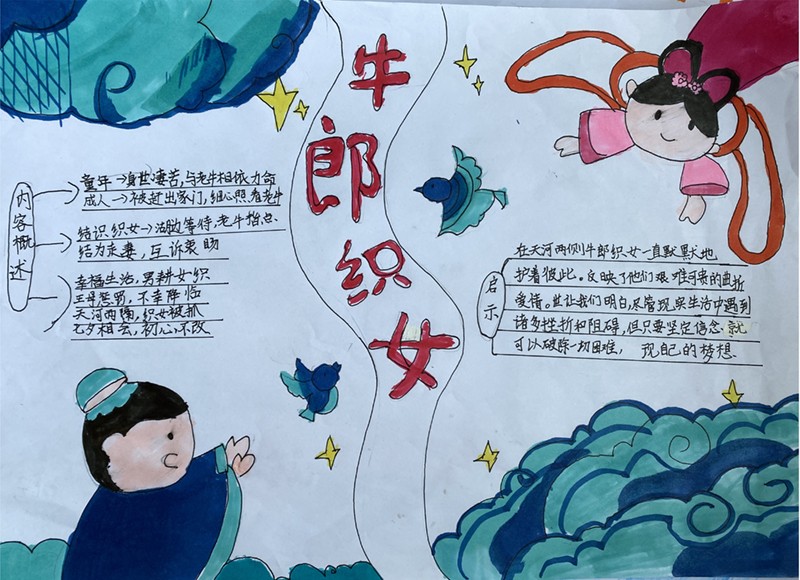 牛郎织女
内容概述
童年→身世凄苦,与老牛相依为命
成人→被赶出家门,细心照看老牛
结识织女→湖边等待,老牛指点.
结为夫妻,互诉衷肠
幸福生活,男耕女织
王母惩罚,不幸降临
天河两隔,织女被抓
七夕相会,初心不改
启示
在天河两侧牛郎织女一直默默地
护着彼此。反映了他们艰难可表的曲折
爱情。并让我们明白,尽管现实生活中遇到
诸多挫折和阻碍,但只要坚定信念.就
可以破除一切困难, 现自己的梦想.